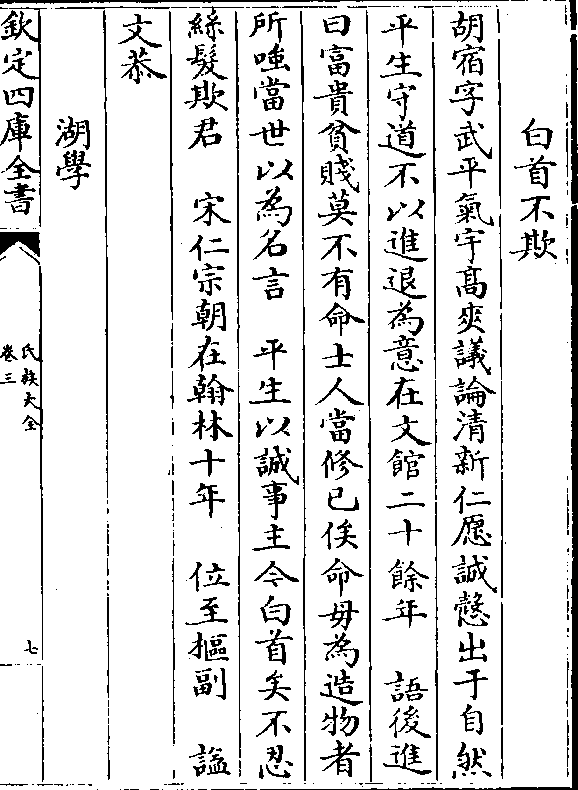 白首不欺
胡宿字武平氣宇髙爽議論清新仁愿誠慤出于自然
平生守道不以進退為意在文館二十餘年　語後進
曰富貴貧賤莫不有命士人當修已俟命毋為造物者
所嗤當世以為名言　平生以誠事主令白首矣不忍
絲髮欺君　宋仁宗朝在翰林十年　位至樞副　諡
文恭
湖學
欽定四庫全書
氏族大全
卷三
七